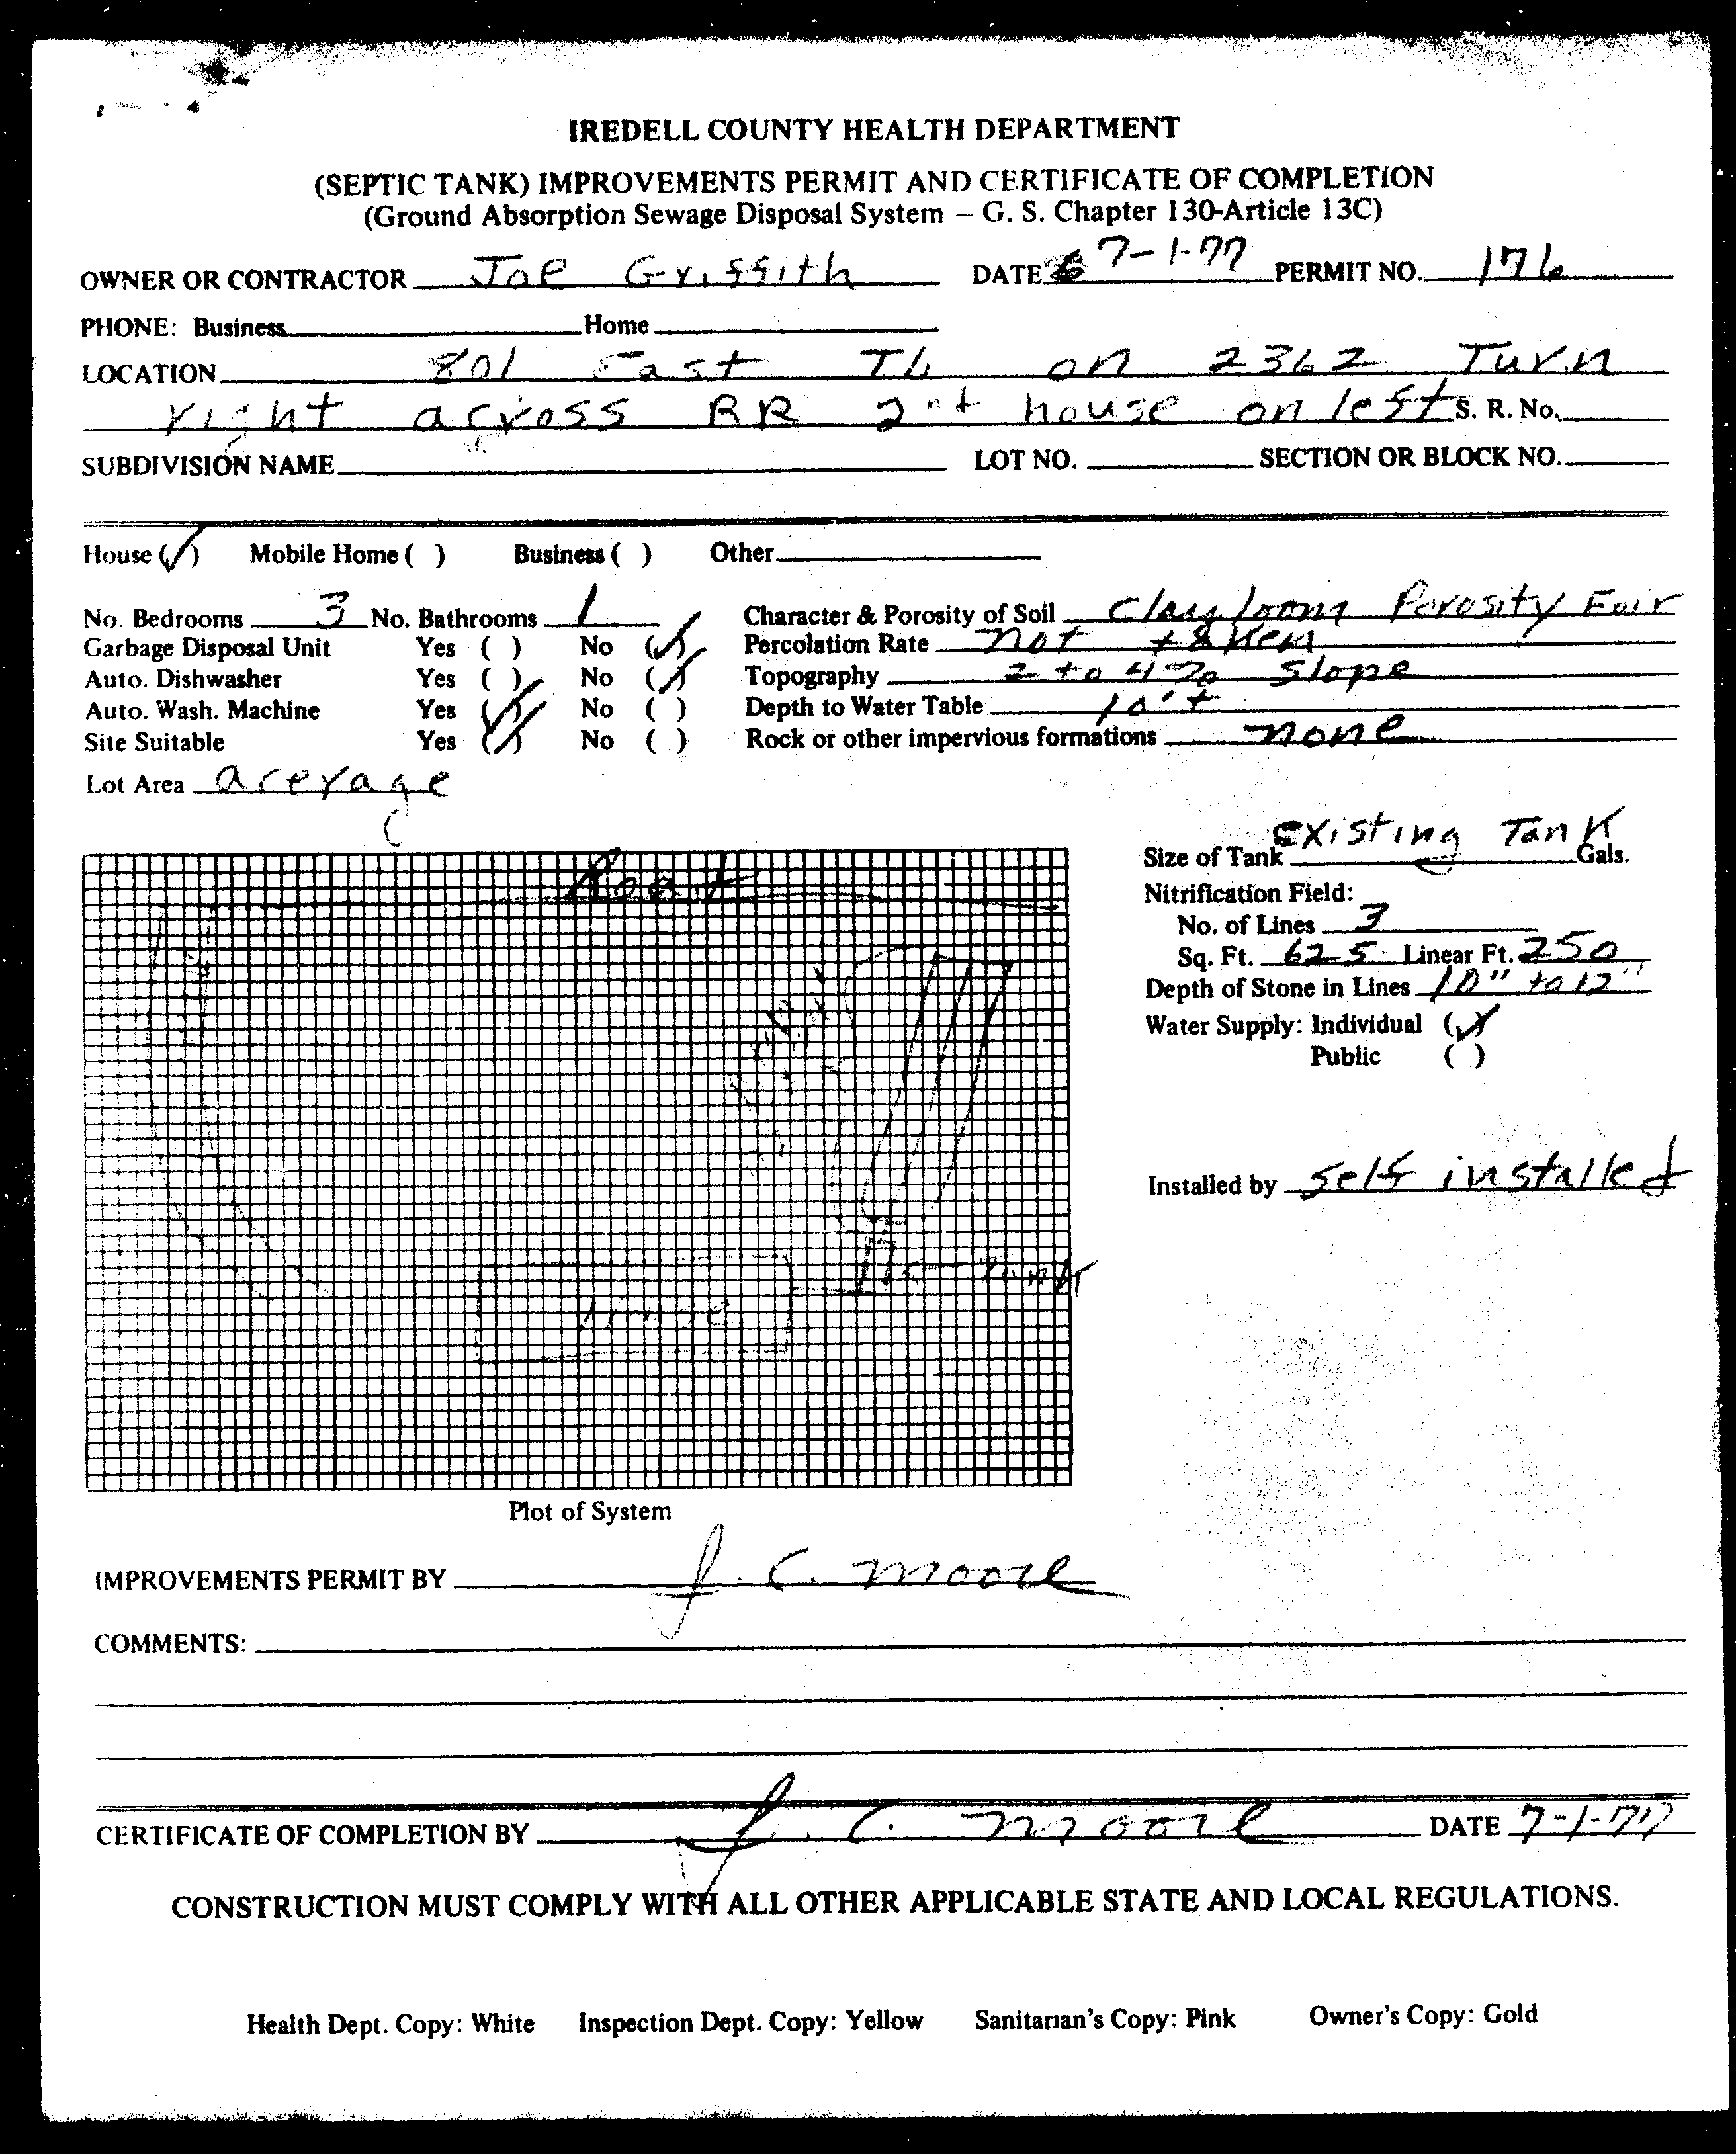 IREDELL COUNTY HEALTH DEPARTMENT
(SEPTIC TANK) IMPROVEMENTS PERMIT AND CERTIFICATE OF COMPLETION
(Ground Absorption Sewage Disposal System – G. S. Chapter 130-Article 13C)
OWNER OR CONTRACTOR Joe Griffith DATE 7-1-77 PERMIT NO. 176
PHONE: Business Home
LOCATION 801 East TL on 2362 Turn
right across RR 2nd house on left S. R. No.
SUBDIVISION NAME LOT NO. SECTION OR BLOCK NO.
House (✓) Mobile Home ( ) Business ( ) Other
No. Bedrooms 3 No. Bathrooms 1 Character & Porosity of Soil Clay loom Porosity Fair
Garbage Disposal Unit Yes ( ) No (✓) Percolation Rate not taken
Auto. Dishwasher Yes ( ) No (✓) Topography 2 to 4% slope
Auto. Wash. Machine Yes (✓) No ( ) Depth to Water Table 10'+
Site Suitable Yes (✓) No ( ) Rock or other impervious formations none
Lot Area aceyage
Size of Tank Existing Tank Gals.
Nitrification Field:
No. of Lines 3
Sq. Ft. 625 Linear Ft. 250
Depth of Stone in Lines 10" to 12"
Water Supply: Individual (✓)
Public ( )
Installed by Self installed
Tank
House
Plot of System
IMPROVEMENTS PERMIT BY J. C. Moore
COMMENTS:
CERTIFICATE OF COMPLETION BY J. C. Moore DATE 7-1-77
CONSTRUCTION MUST COMPLY WITH ALL OTHER APPLICABLE STATE AND LOCAL REGULATIONS.
Health Dept. Copy: White Inspection Dept. Copy: Yellow Sanitarian's Copy: Pink Owner's Copy: Gold